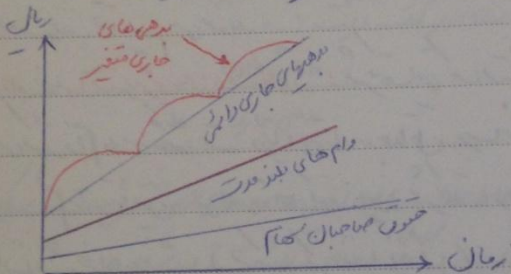 ریال
بدهی های
جاری متغیر
بدهیهای جاری دائمی
وام های بلند مدت
حقوق صاحبان سهام
زمان